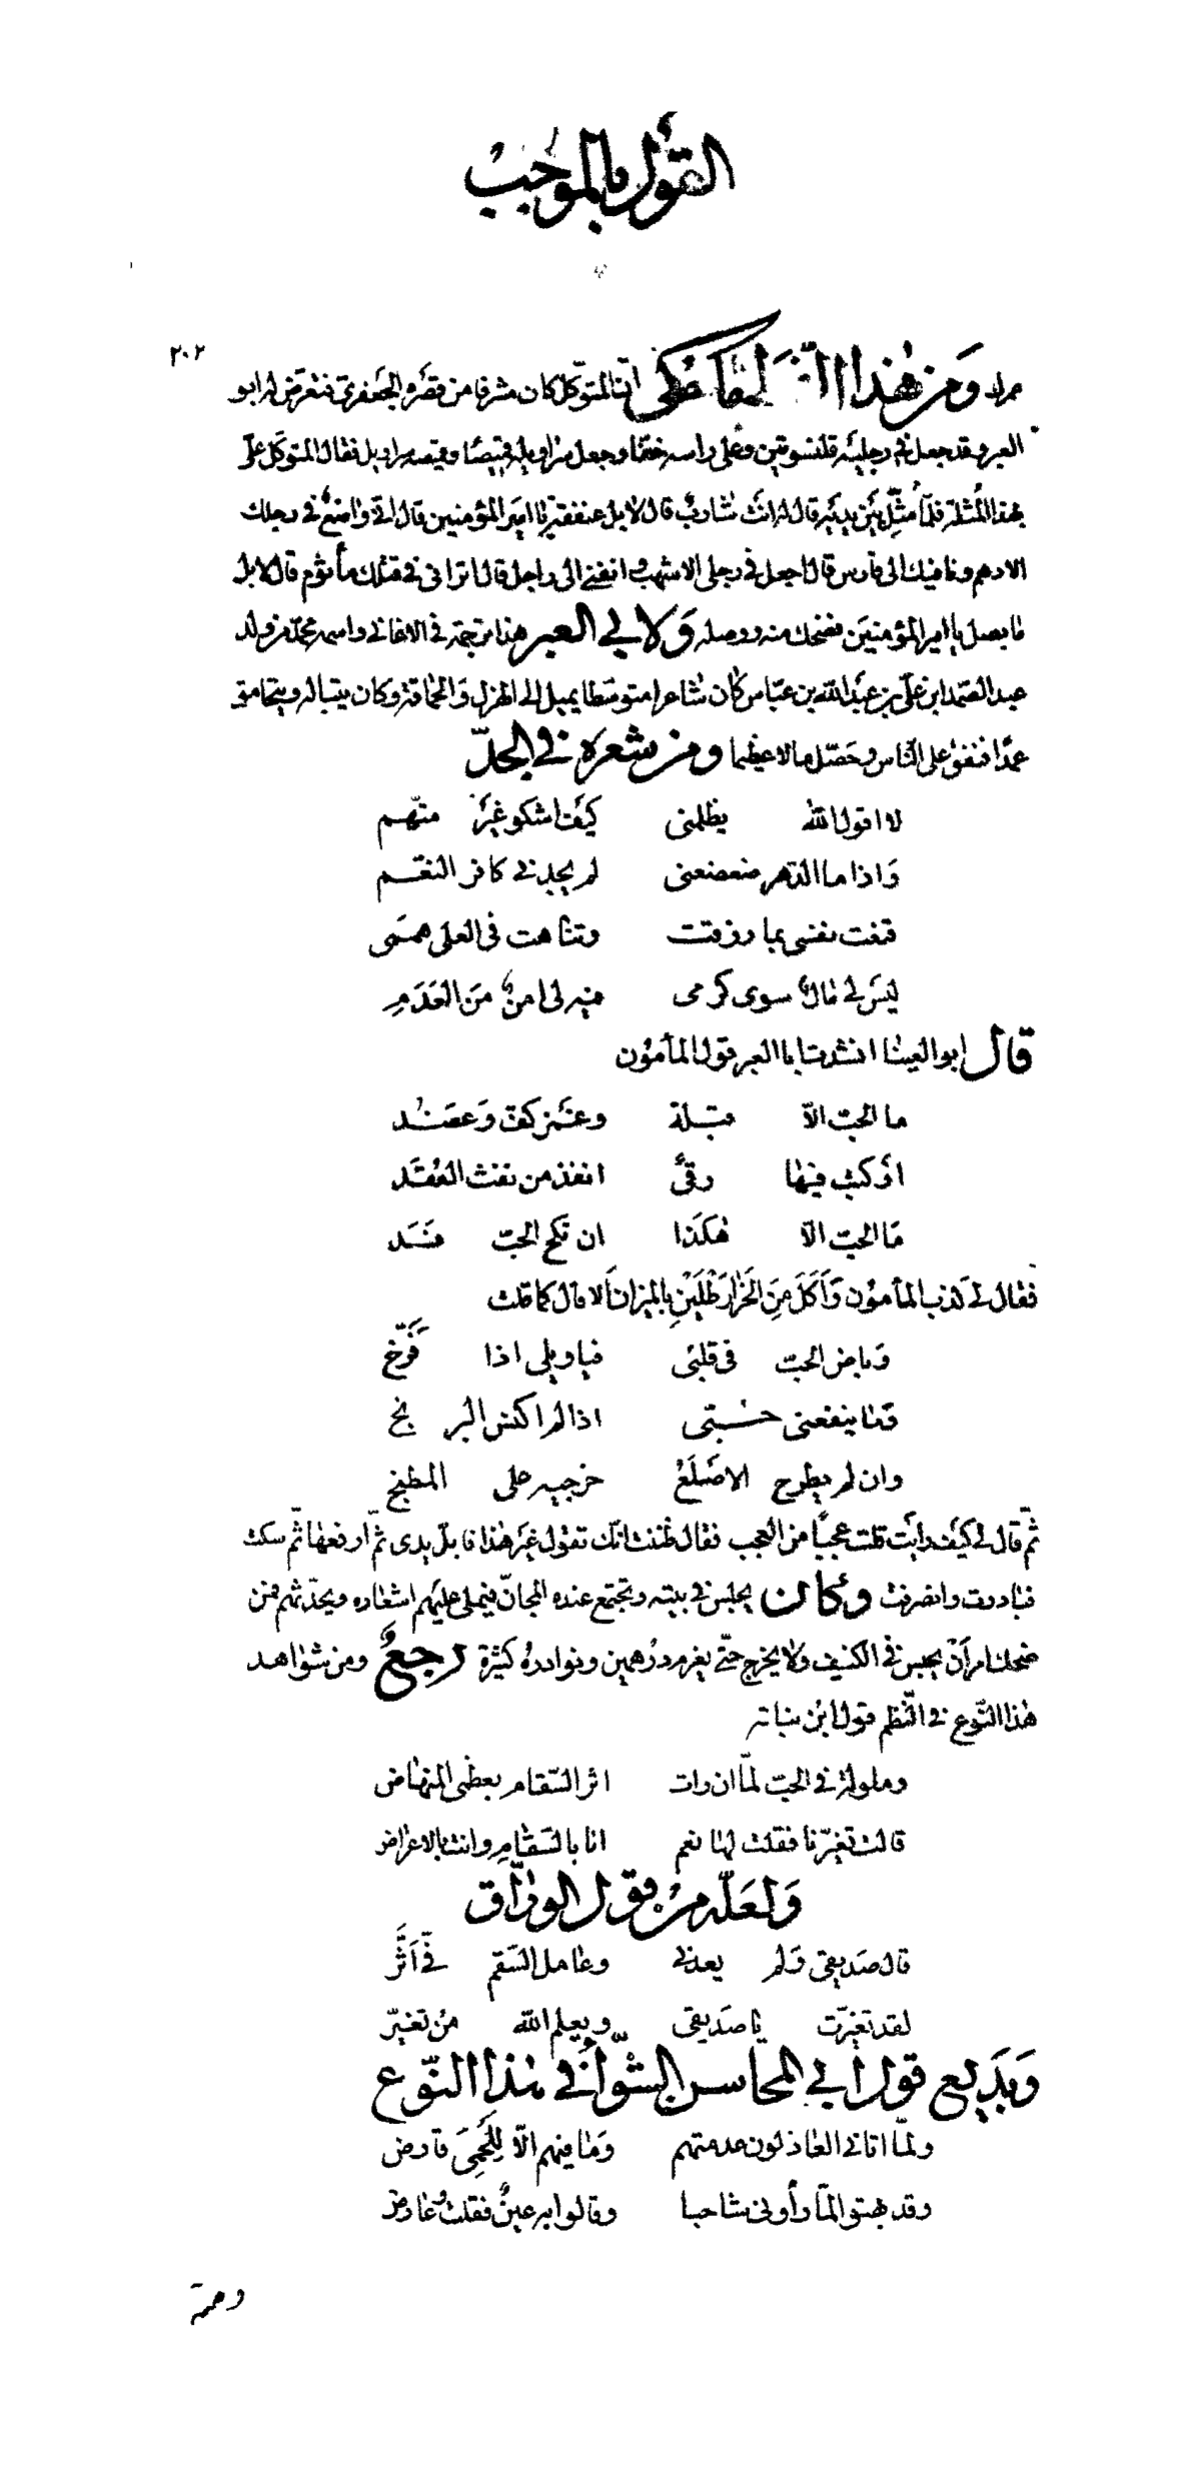 القول بالموجب
٢٠٢
مراد ومن هذا النمط ما حكى ان المتوكل كان مشرفا من قصره الجعفرى فتعرض له ابو
العبر وقد جعل فى رجليه قلنسوتين وعلى راسه خفا وجعل سراويله قميصا وقميصه سراويل فقال المتوكل علىّ
بهذا المثلة فلما مثّل بين يديه قال له انت شارب قال لا بل عنفقة يا امير المؤمنين قال انى واضع فى رجلك
الادهم ونافيك الى فارس قال اجعل فى رجلى الاشهب وانفنى الى راجل قال اترانى فى قتلك مأثوم قال لا بل
ما بصل يا امير المؤمنين فضحك منه ووصله ولابى العبر هذا ترجمة فى الاغانى واسمه محمد من ولد
عبد الصمد ابن على بن عبد الله بن عباس كان شاعرا متوسطا يميل الى الهزل والحماقة وكان يتباله ويتحامق
عمدا فنفق على الناس وحصّل مالا عظيما ومن شعره فى الجدّ
لا اقول الله يظلمنى كيف اشكو غير متّهم
واذا ما الدهر ضعضعنى لم يجدنى كافر النعم
قنعت نفسى بما رزقت وتناهت فى العلى هممى
ليس لى مال سوى كرمى فيه لى امن من العدم
قال ابو العينا انشدت ابا العبر قول المأمون
ما الحبّ الاّ قبلة وغمز كفّ وعضد
او كتب فيها رقىً انفذ من نفث العقد
ما الحبّ الاّ هكذا ان نكح الحبّ فسد
فقال لى كذب المأمون وأكل من الخرا رطلين بالميزان ألا قال كما قلت
وباض الحبّ فى قلبى فيا ويلى اذا فرّخ
فما ينفعنى حبّى اذا لم اكنس البربخ
وان لم يطرح الاصلع خرجيه على المطبخ
ثم قال لى كيف رايت قلت عجبا من العجب فقال ظننت انك تقول غير هذا فابلّ يدى ثم ارفعها ثم سكت
فبادرت وانصرفت وكان يجلس فى بيته وتجتمع عنده المجّان فيملى عليهم اشعاره ويحدّثهم فمن
ضحك امر أن يحبس فى الكنيف ولا يخرج حتى يغرم درهمين ونوادره كثيرة رجع ومن شواهد
هذا النّوع فى النّظم قول ابن نباتة
وملولة فى الحبّ لمّا ان رات اثر السّقام بعظمى المنهاض
قالت تغيّرنا فقلت لها نعم انا بالسقام وانت بالاعراض
ولعلّه من قول الورّاق
قال صديقى ولم يعدنى وعامل السّقم فىّ أثّر
لقد تغيّرت يا صديقى ويعلم الله من تغيّر
وبديع قول ابى المحاسن الشوّا فى هذا النّوع
ولمّا اتانى العاذلون عدمتهم وما فيهم الاّ للحمى قارض
وقد بهتوا لمّا رأونى شاحبا وقالوا به عين فقلت وعارض